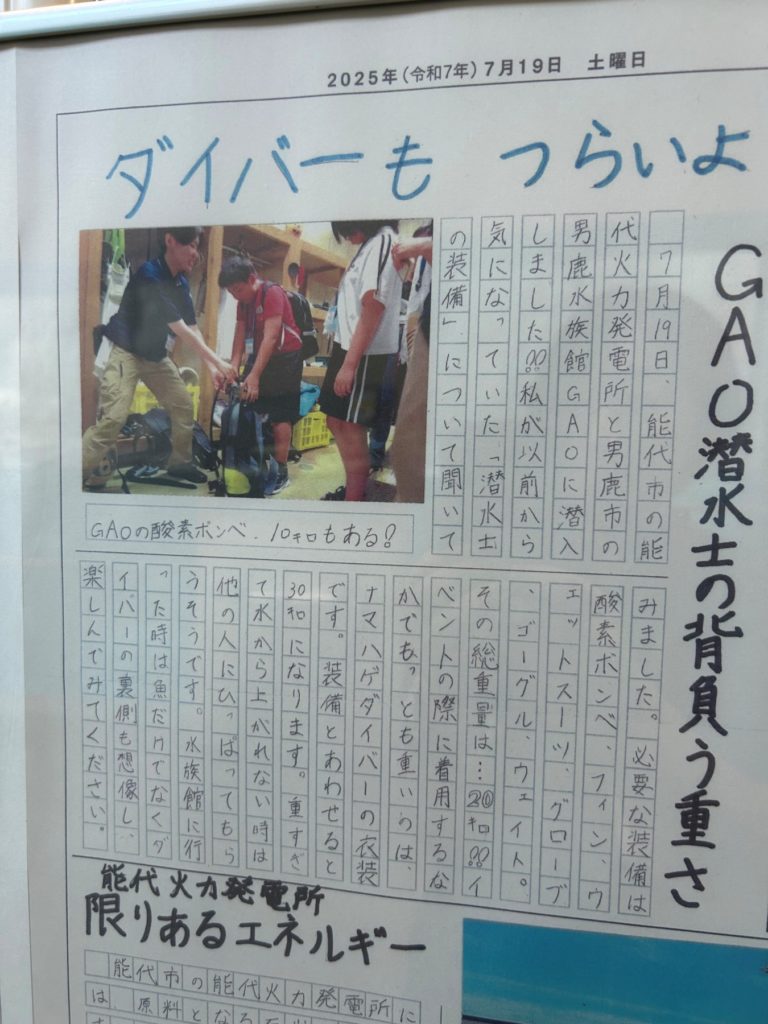 2025年(令和7年)7月19日　土曜日
ダイバーも つらいよ
GAO潜水士の背負う重さ
7月19日、能代市の能
代火力発電所と男鹿市の
男鹿水族館GAOに潜入
しました!!私が以前から
気になっていた「潜水士
の装備」について聞いて
GAOの酸素ボンベ、10キロもある?
みました。必要な装備は
酸素ボンベ、フィン、ウ
エットスーツ、グローブ
、ゴーグル、ウェイト。
その総重量は…20キロ!!イ
ベントの際に着用するな
かでもっとも重いのは、
ナマハゲダイバーの衣装
です。装備とあわせると
30キロになります。重すぎ
て水から上がれない時は
他の人にひっぱってもら
うそうです。水族館に行
った時は魚だけでなくダ
イバーの裏側も想像し、
楽しんでみてください。
能代火力発電所
限りあるエネルギー
能代市の能代火力発電所に
は、原料となる